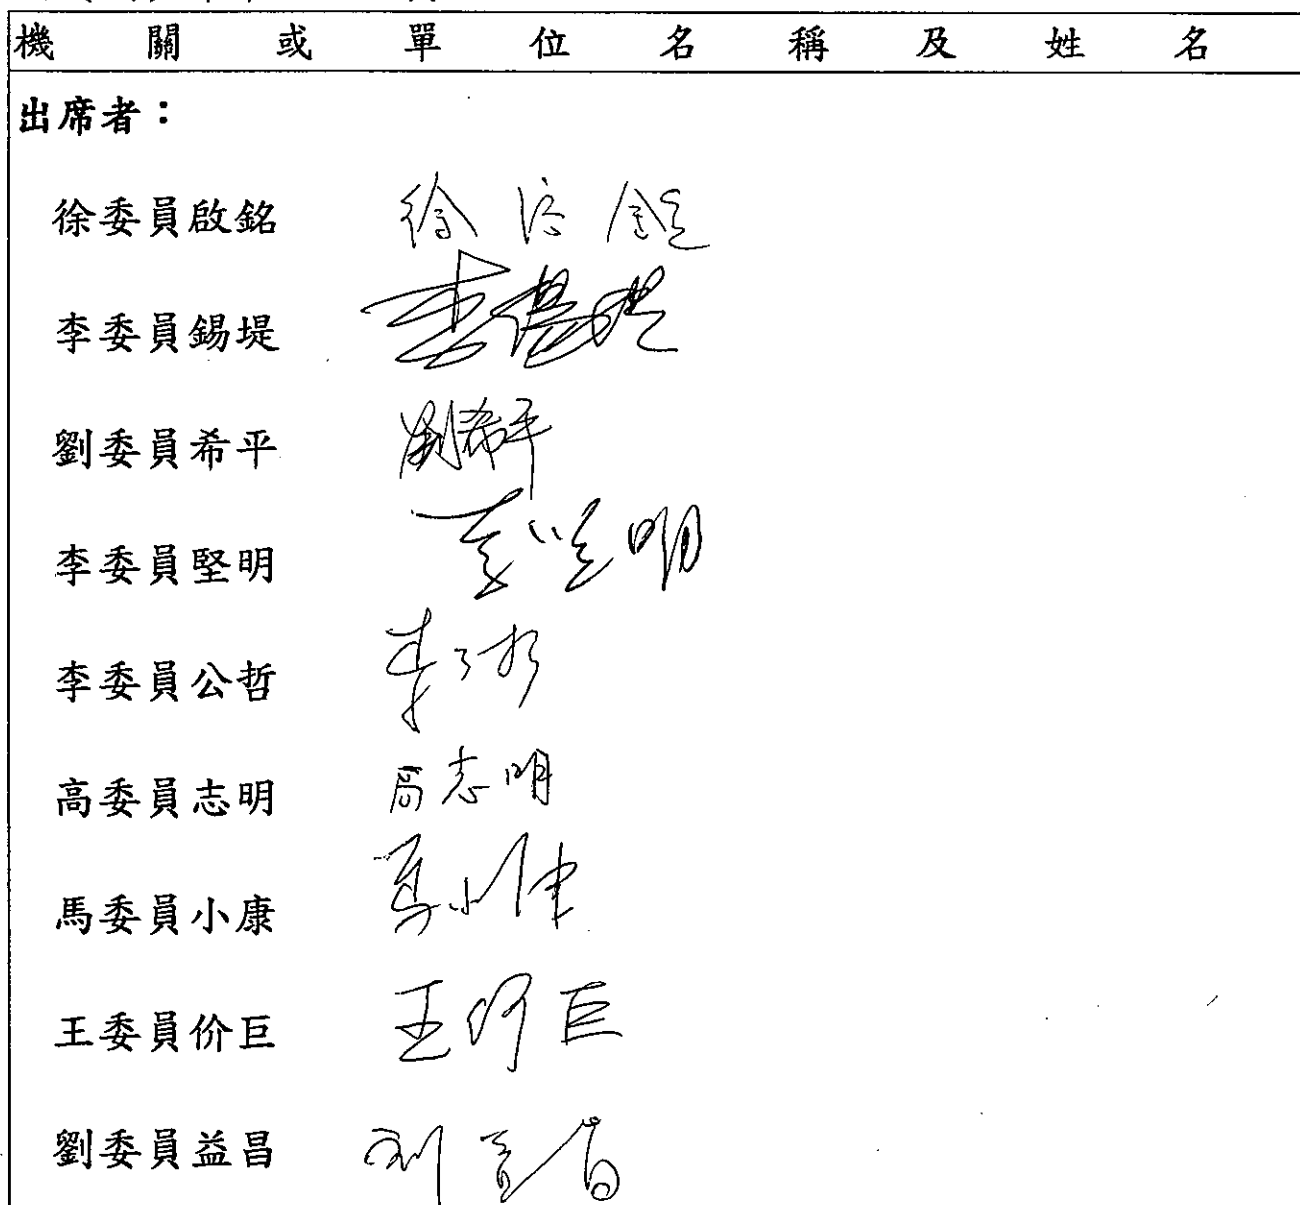 機關或單位名稱及姓名
出席者：
徐委員啟銘
李委員錫堤 李錫堤
劉委員希平 劉希平
李委員堅明 李堅明
李委員公哲
高委員志明 高志明
馬委員小康 馬小康
王委員价巨 王价巨
劉委員益昌 劉益昌